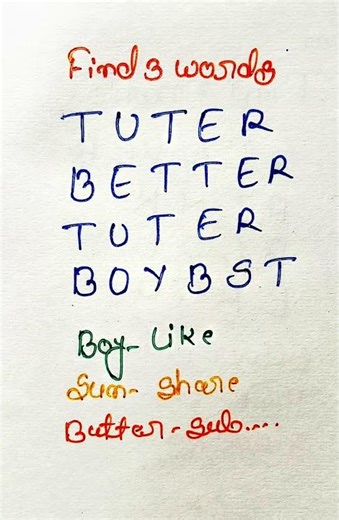 Find 3 words
TUTER
BETTER
TUTER
BOYBST
Boy- Like
Sun- Share
Butter - Sub....